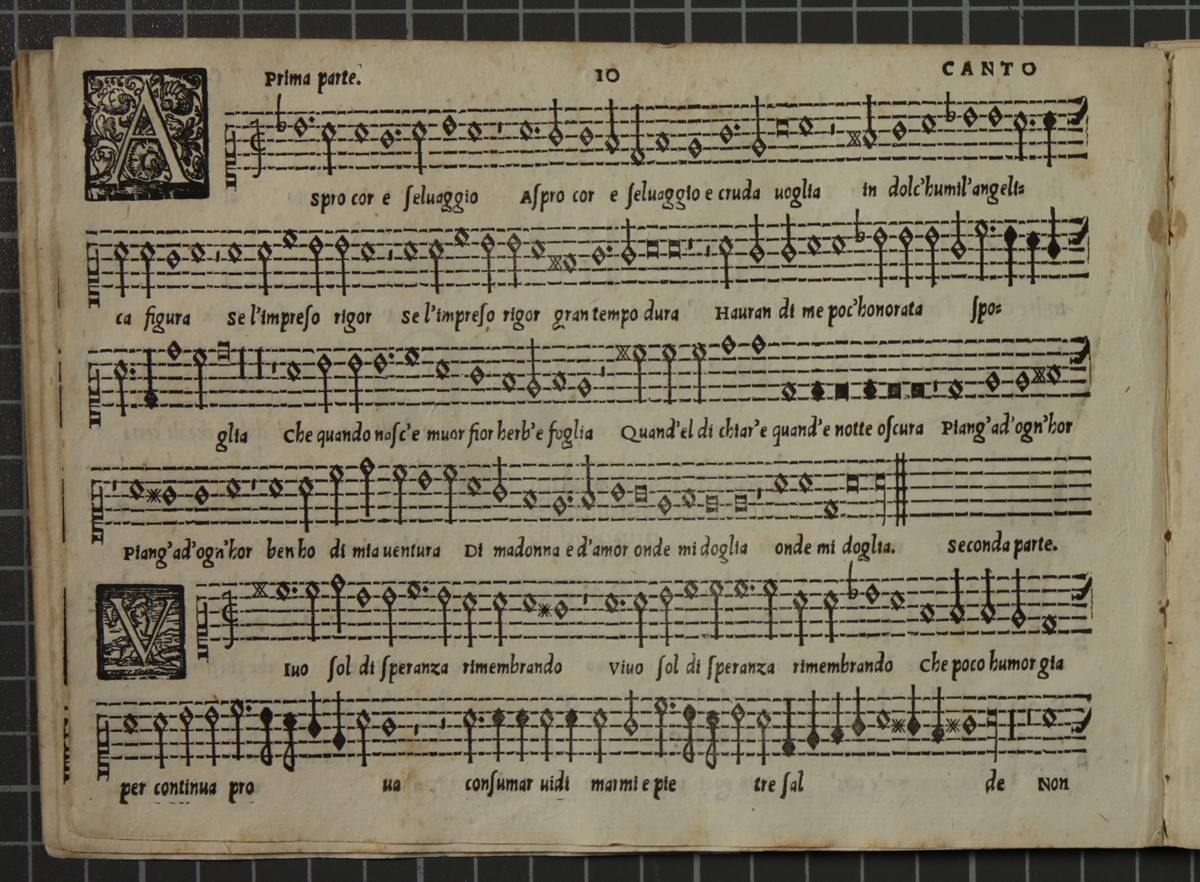 Prima parte. 10 CANTO
A
spro cor e ſeluaggio Aſpro cor e ſeluaggio e cruda uoglia in dolc'humil'angeli=
ca figura Se l'impreſo rigor Se l'impreſo rigor gran tempo dura Hauran di me poc'honorata ſpo=
glia Che quando naſc'e muor fior herb'e foglia Quand'el di chiar'e quand'e notte oſcura Piang'ad'ogn'hor
Piang'ad'ogn'hor ben ho di mia uentura Di madonna e d'amor onde mi doglia onde mi doglia. Seconda parte.
V
Iuo ſol di ſperanza rimembrando Viuo ſol di ſperanza rimembrando Che poco humor gia
per continua pro ua conſumar uidi marmi e pie tre ſal de Non